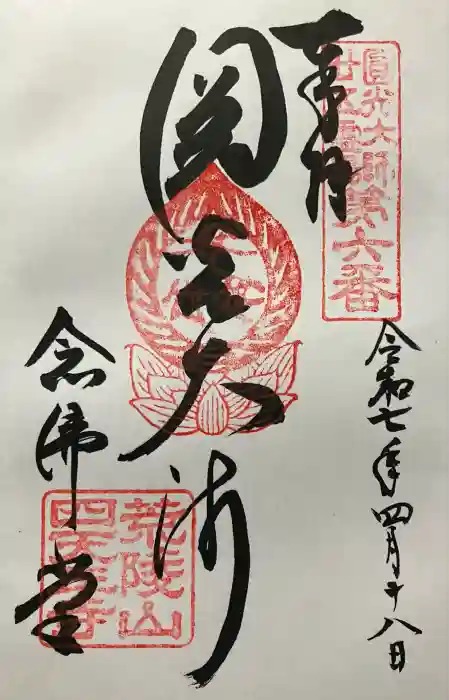 奉拝
圓光大師
廿五霊場第六番
令和七年四月十八日
圓光大師
念佛堂
荒陵山
四天王寺